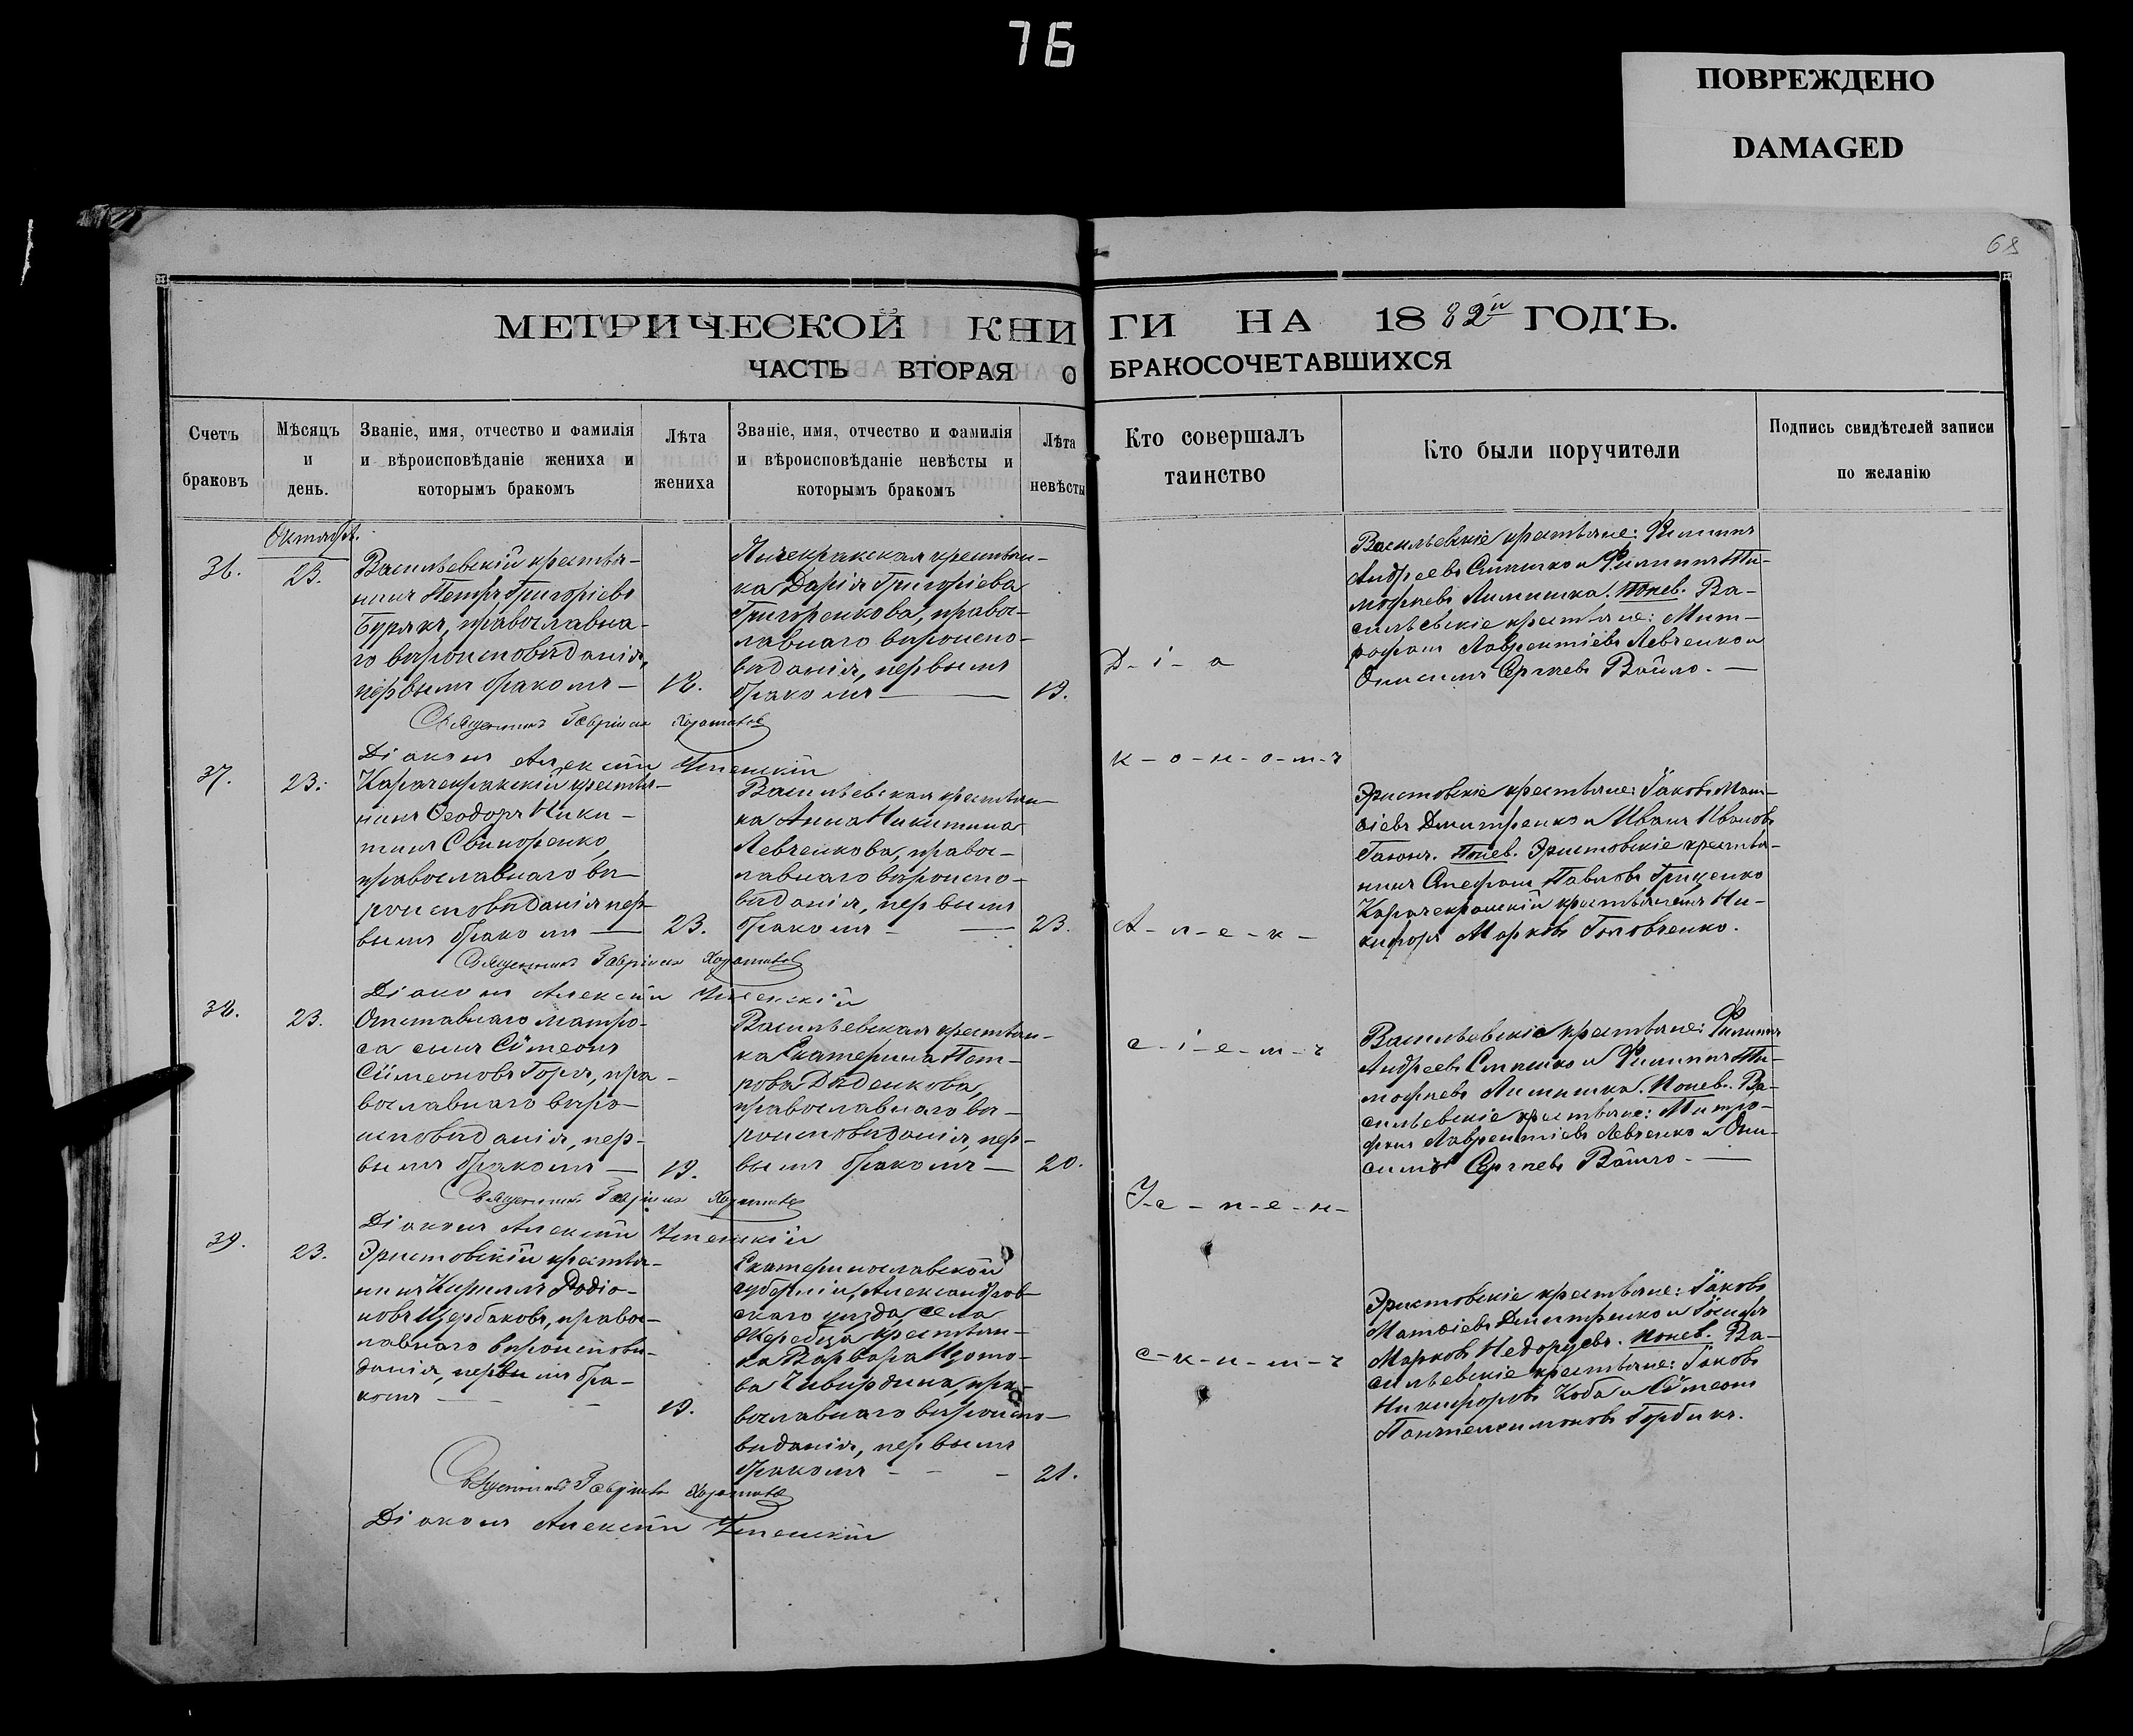 76
ПОВРЕЖДЕНО
DAMAGED
68
МЕТРИЧЕСКОЙ КНИГИ НА 1882й ГОДЪ.
ЧАСТЬ ВТОРАЯ О БРАКОСОЧЕТАВШИХСЯ
Счетъ браковъ
Мѣсяцъ и день.
Званіе, имя, отчество и фамилія
и вѣроисповѣданіе жениха и
которымъ бракомъ
Лѣта жениха
Званіе, имя, отчество и фамилія
и вѣроисповѣданіе невѣсты и
которымъ бракомъ
Лѣта невѣсты
Кто совершалъ
таинство
Кто были поручители
Подпись свидѣтелей записи
по желанію
Октября.
36.
23.
Васильевскій крестья-
нинъ Петръ Григоріевъ
Бурякъ, православна-
го вѣроисповѣданія,
первымъ бракомъ —
18.
крестьян-
ка Дарія Григоріева
Григоренкова, правос-
лавнаго вѣроиспо-
вѣданія, первымъ
бракомъ —
19.
Васильевскіе крестьяне: Филиппъ
Андреевъ и Филиппъ Ти-
мофеевъ Лимишка. Понев. Ва-
сильевскіе крестьяне: Мит-
рофанъ Лаврентіевъ Левченко и
Онисимъ Сергѣевъ Войло. —
Священникъ Гавріилъ
Діаконъ Алексій Успенскій
37.
23.
Карачекракскій крестья-
нинъ Ѳеодоръ Ники-
тинъ Свинаренко,
православнаго вѣ-
роисповѣданія, пер-
вымъ бракомъ —
23.
Васильевская крестьян-
ка Анна Никитина
Левченкова, правос-
лавнаго вѣроиспо-
вѣданія, первымъ
бракомъ - —
23.
Эристовскіе крестьяне: Іаковъ Мат-
ѳіевъ Дмитренко и Иванъ Ивановъ
Гаюнъ. Понев. Эристовскіе крестья-
нинъ Стефанъ Павловъ Гриценко
Карачекракскій крестьянинъ Ни-
кифоръ Марковъ Головченко.
Священникъ Гавріилъ
Діаконъ Алексій Успенскій
38.
23.
Отставнаго матро-
са сынъ Сѵмеонъ
Сѵмеоновъ Горга, пра-
вославнаго вѣро-
исповѣданія, пер-
вымъ бракомъ —
19.
Васильевская крестьян-
ка Екатерина Пет-
рова Дѣденкова,
православнаго вѣ-
роисповѣданія, пер-
вымъ бракомъ —
20.
Васильевскіе крестьяне: Филиппъ
Андреевъ и Филиппъ Ти-
мофеевъ Лимишка. Понев. Ва-
сильевскіе крестьяне: Митро-
фанъ Лаврентіевъ Левченко и Они-
симъ Сергѣевъ Войло. —
Священникъ Гавріилъ
Діаконъ Алексій Успенскій
39.
23.
Эристовскій крестья-
нинъ Кириллъ Родіо-
новъ Щербаковъ, правос-
лавнаго вѣроисповѣ-
данія, первымъ бра-
комъ —
19.
Екатеринославской
губерніи, Александров-
скаго уѣзда, села
Жеребца крестьян-
ка Варвара Изото-
ва Чивирдина, пра-
вославнаго вѣроиспо-
вѣданія, первымъ
бракомъ - - -
21.
Эристовскіе крестьяне: Іаковъ
Матѳіевъ Дмитренко и Іосифъ
Марковъ Недорубъ. Понев. Ва-
сильевскіе крестьяне: Іаковъ
Никифоровъ Коба и Сѵмеонъ
Пантелеимоновъ Горбикъ.
Священникъ Гавріилъ
Діаконъ Алексій Успенскій
Д-і-а
к-о-н-о-м-ъ
А-л-е-к-
с-і-е-м-ъ
У-с-п-е-н-
с-к-и-м-ъ